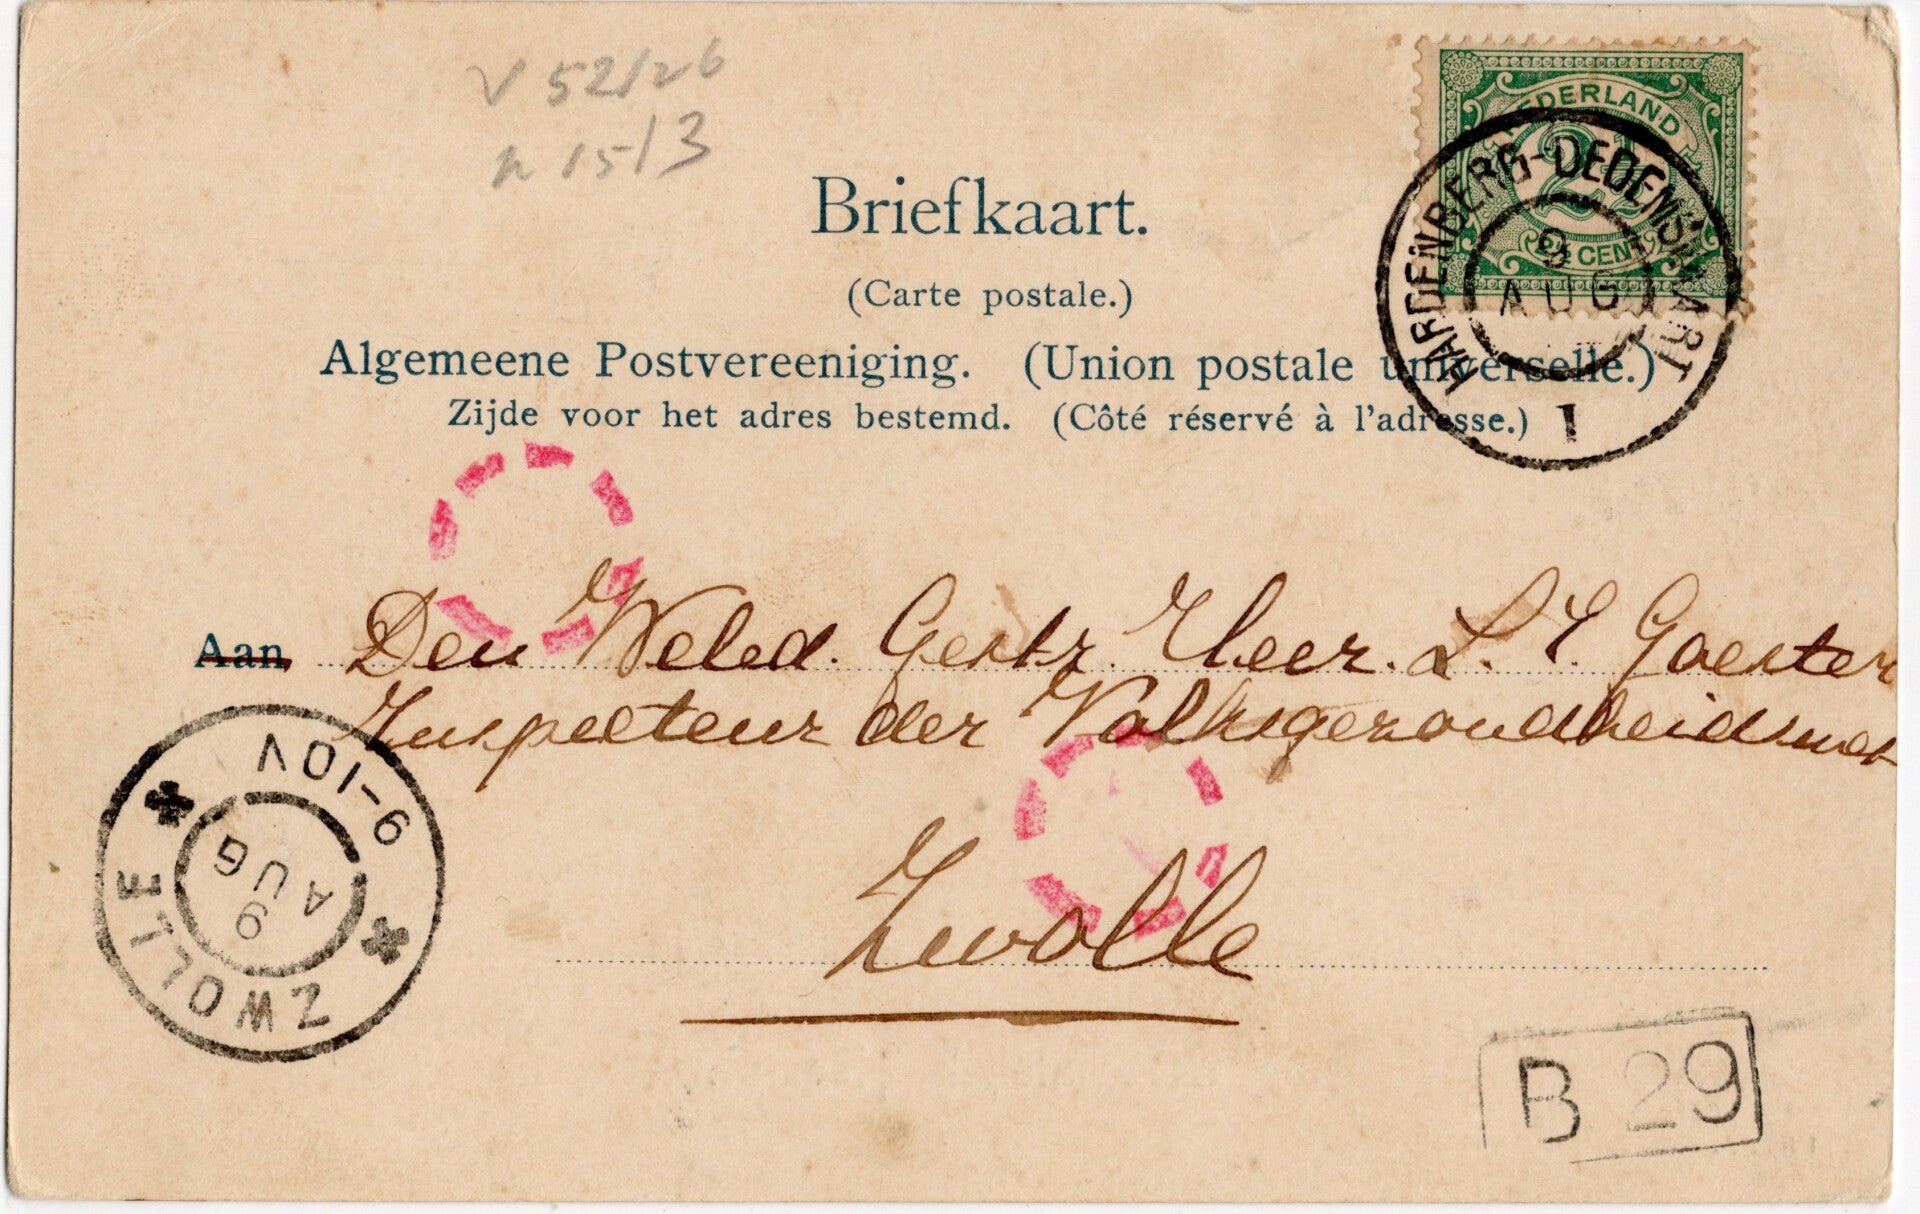 V 52/26
n 15/3
NEDERLAND
2½ CENT
HARDENBERG-DEDEMSVAART
9
AUG
1
Briefkaart.
(Carte postale.)
Algemeene Postvereeniging. (Union postale universelle.)
Zijde voor het adres bestemd. (Côté réservé à l'adresse.)
Aan Den Weled. Gestr. Heer.
Inspecteur der Volksgezondheidswet
Zwolle
9-10V
9
AUG
ZWOLLE
B 29